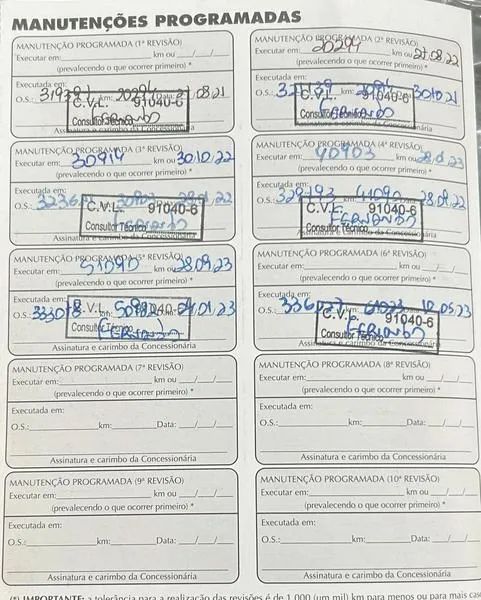 MANUTENÇÕES PROGRAMADAS
MANUTENÇÃO PROGRAMADA (1ª REVISÃO)
Executar em: km ou / /
(prevalecendo o que ocorrer primeiro) *
Executada em:
O.S.: km: 20294 Data: 21 08 21
C.V.L. 91040-6
Consultor Técnico
FERNANDO
Assinatura e carimbo da Concessionária
MANUTENÇÃO PROGRAMADA (2ª REVISÃO)
Executar em: 20294 km ou 21.08.22
(prevalecendo o que ocorrer primeiro) *
Executada em:
O.S.: 30/10/21
C.V.L. 91040-6
Consultor Técnico
FERNANDO
Assinatura e carimbo da Concessionária
MANUTENÇÃO PROGRAMADA (3ª REVISÃO)
Executar em: 30914 km ou 30.10.22
(prevalecendo o que ocorrer primeiro) *
Executada em:
O.S.: 22
C.V.L. 91040-6
Consultor Técnico
FERNANDO
Assinatura e carimbo da Concessionária
MANUTENÇÃO PROGRAMADA (4ª REVISÃO)
Executar em: 40903 km ou 23
(prevalecendo o que ocorrer primeiro) *
Executada em:
O.S.: 28.09.22
C.V.L. 91040-6
Consultor Técnico
FERNANDO
Assinatura e carimbo da Concessionária
MANUTENÇÃO PROGRAMADA (5ª REVISÃO)
Executar em: 51090 km ou 28.09.23
(prevalecendo o que ocorrer primeiro) *
Executada em:
O.S.: 01 23
C.V.L.
Consultor Técnico
FERNANDO
Assinatura e carimbo da Concessionária
MANUTENÇÃO PROGRAMADA (6ª REVISÃO)
Executar em: km ou / /
(prevalecendo o que ocorrer primeiro) *
Executada em:
O.S.: 05 23
91040-6
Consultor Técnico
FERNANDO
Assinatura e carimbo da Concessionária
MANUTENÇÃO PROGRAMADA (7ª REVISÃO)
Executar em: km ou / /
(prevalecendo o que ocorrer primeiro) *
Executada em:
O.S.: km: Data: / /
Assinatura e carimbo da Concessionária
MANUTENÇÃO PROGRAMADA (8ª REVISÃO)
Executar em: km ou / /
(prevalecendo o que ocorrer primeiro) *
Executada em:
O.S.: km: Data: / /
Assinatura e carimbo da Concessionária
MANUTENÇÃO PROGRAMADA (9ª REVISÃO)
Executar em: km ou / /
(prevalecendo o que ocorrer primeiro) *
Executada em:
O.S.: km: Data: / /
Assinatura e carimbo da Concessionária
MANUTENÇÃO PROGRAMADA (10ª REVISÃO)
Executar em: km ou / /
(prevalecendo o que ocorrer primeiro) *
Executada em:
O.S.: km: Data: / /
Assinatura e carimbo da Concessionária
(*) IMPORTANTE: a tolerância para a realização das revisões é de 1.000 (um mil) km para menos ou para mais